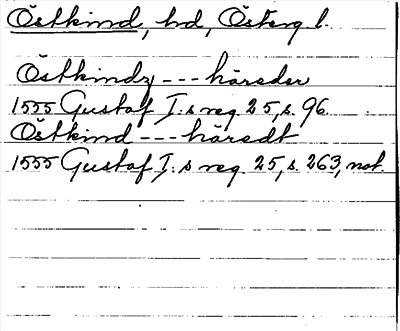 Östkind, hd, Österg. l.
Östkindz --- häreder
1555 Gustaf I:s reg 25, s. 96.
Östkind --- häredt
1555 Gustaf I:s reg. 25, s. 263, not.